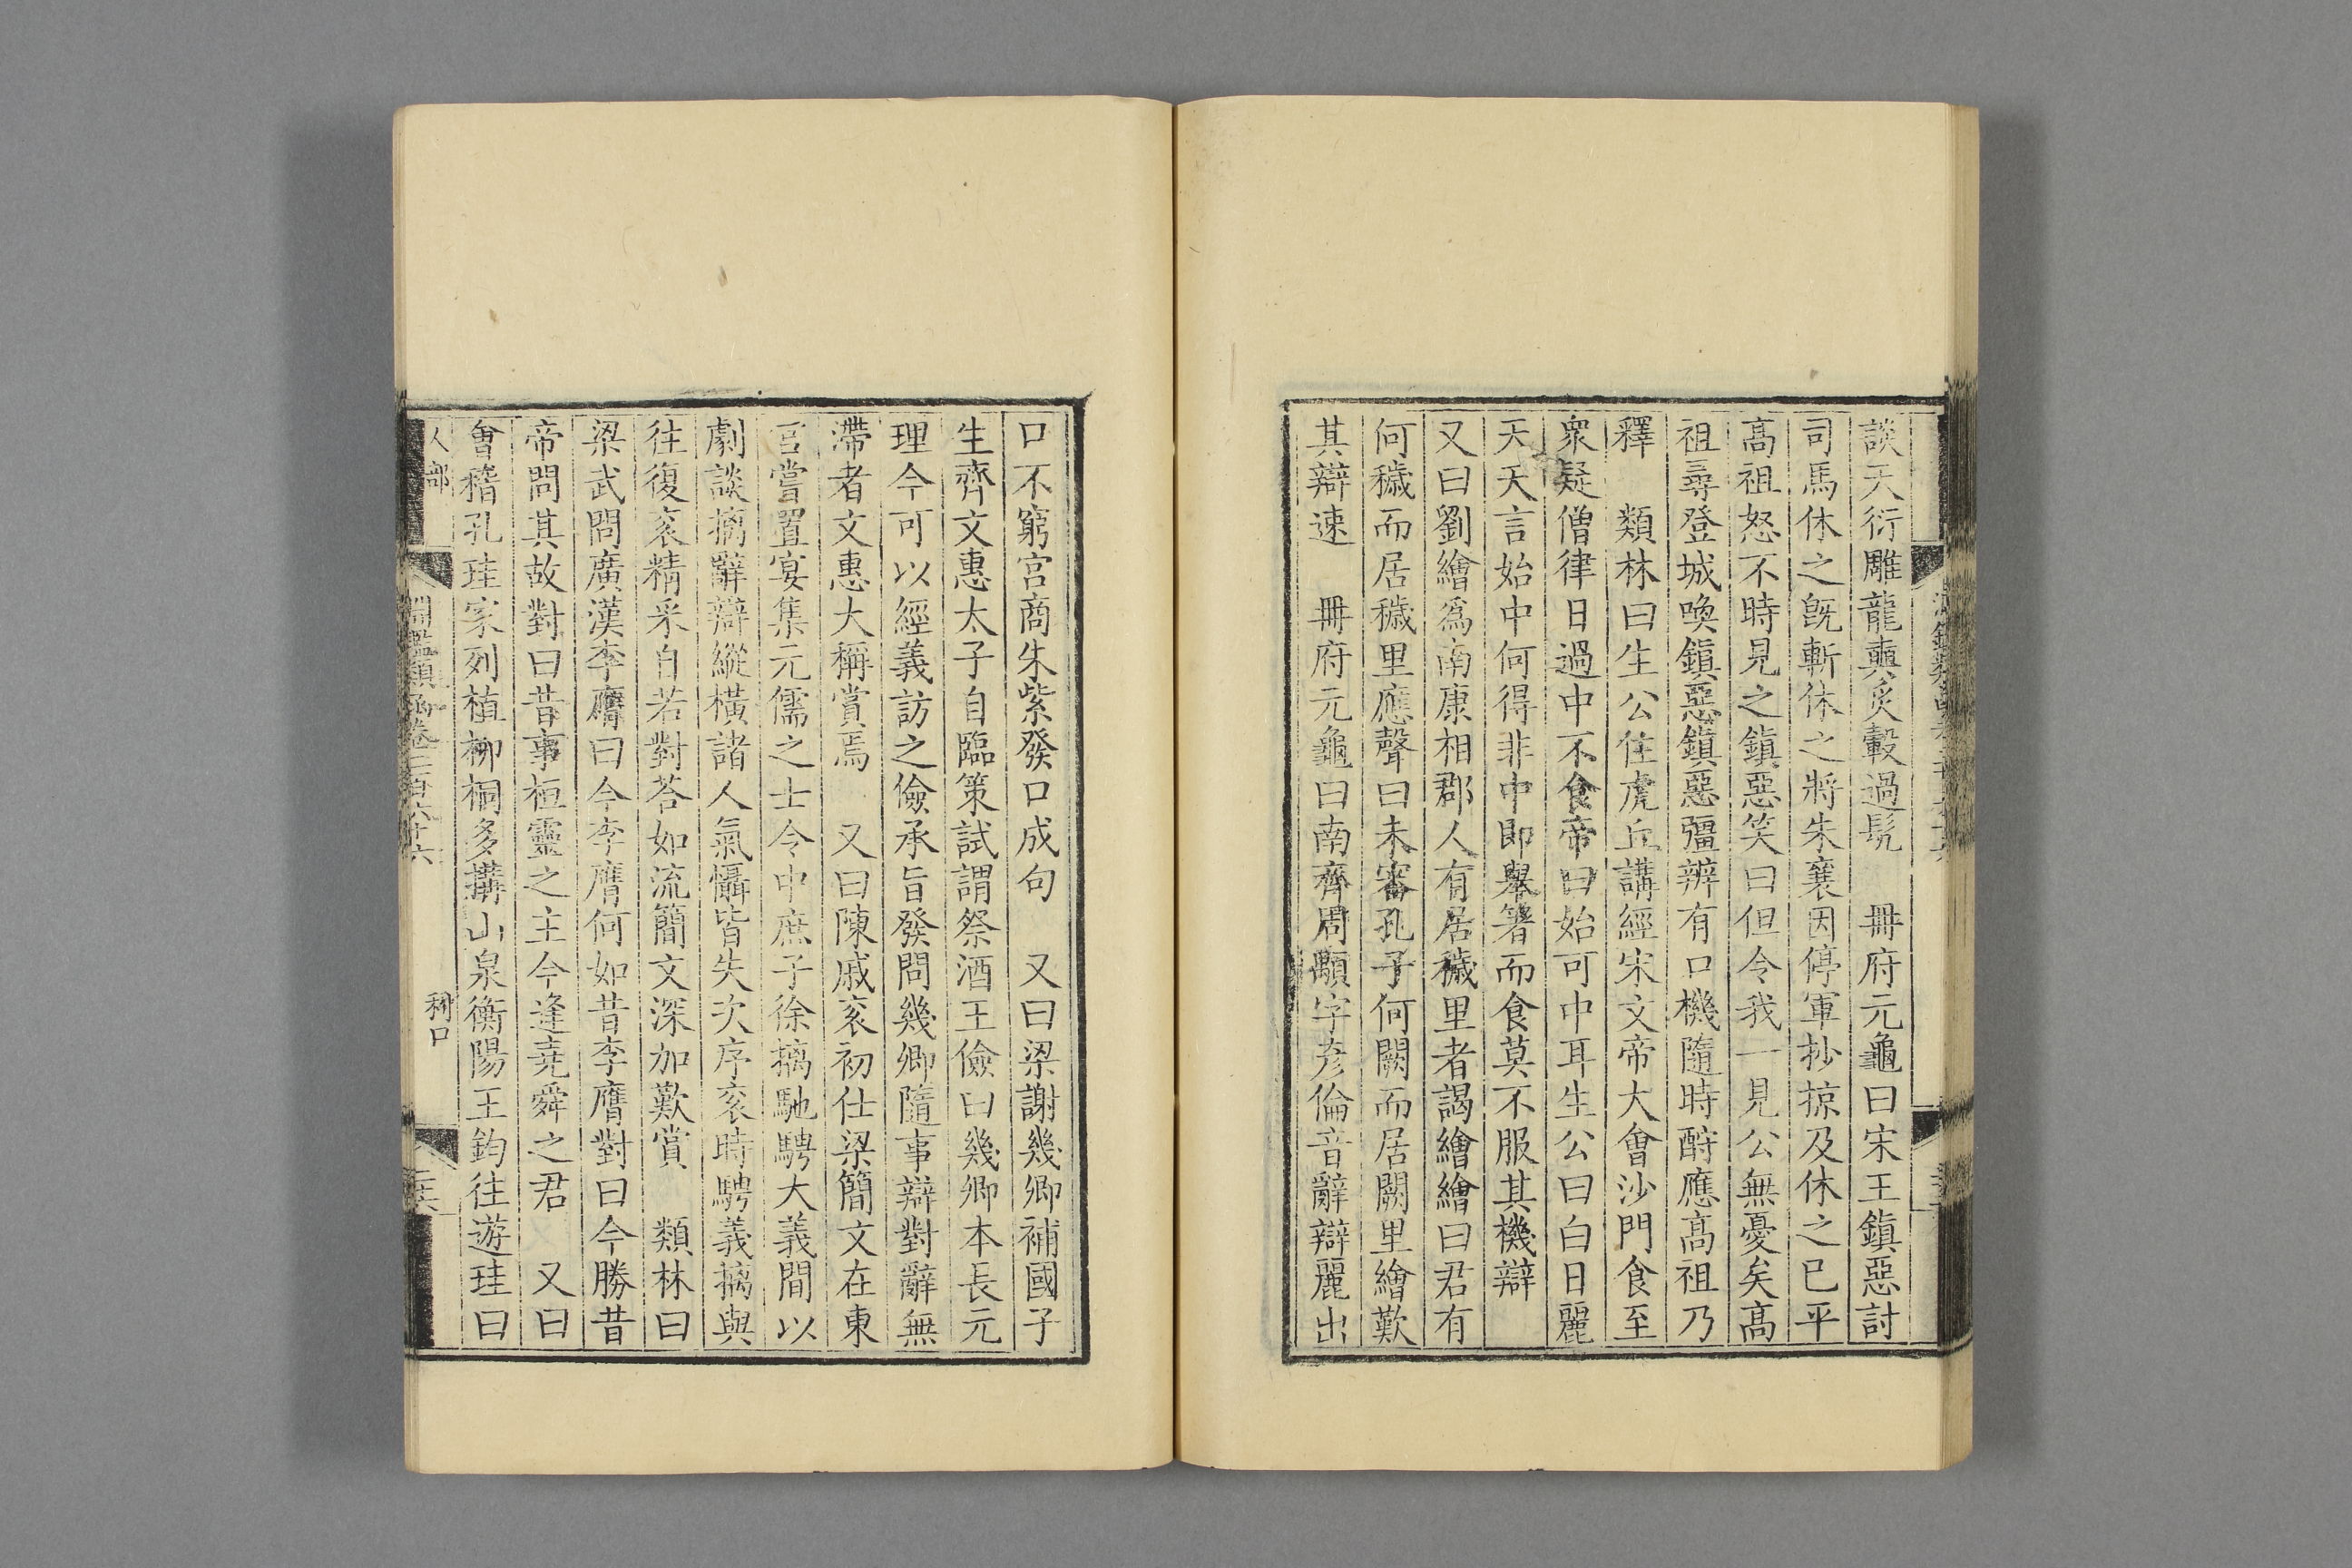 談天衍雕龍奭炙轂過髡　冊府元龜曰宋王鎮惡討
司馬休之旣斬休之將朱襄因停軍抄掠及休之已平
高祖怒不時見之鎮惡笑曰但令我一見公無憂矣高
祖尋登城喚鎮惡鎮惡彊辨有口機隨時酧應高祖乃
釋　類林曰生公住虎丘講經宋文帝大會沙門食至
衆疑僧律日過中不食帝曰始可中耳生公曰白日麗
天天言始中何得非中即舉箸而食莫不服其機辯
又曰劉繪爲南康相郡人有居穢里者謁繪繪曰君有
何穢而居穢里應聲曰未審孔子何闕而居闕里繪歎
其辯速　冊府元龜曰南齊周顒字彦倫音辭辯麗出
口不窮宫商朱紫發口成句　又曰梁謝幾卿補國子
生齊文惠太子自臨策試謂祭酒王儉曰幾卿本長元
理今可以經義訪之儉承旨發問幾卿隨事辯對辭無
滯者文惠大稱賞焉　又曰陳戚衮初仕梁簡文在東
宫嘗置宴集元儒之士令中庶子徐摛馳騁大義間以
劇談摛辭辯縱橫諸人氣懾皆失次序衮時騁義摛與
往復衮精采自若對荅如流簡文深加歎賞　類林曰
梁武問廣漢李膺曰今李膺何如昔李膺對曰今勝昔
帝問其故對曰昔事桓靈之主今逢堯舜之君　又曰
會稽孔珪家列植柳桐多搆山泉衡陽王鈞往遊珪曰
人部
淵鑑類函卷二百六十六
利口
二六